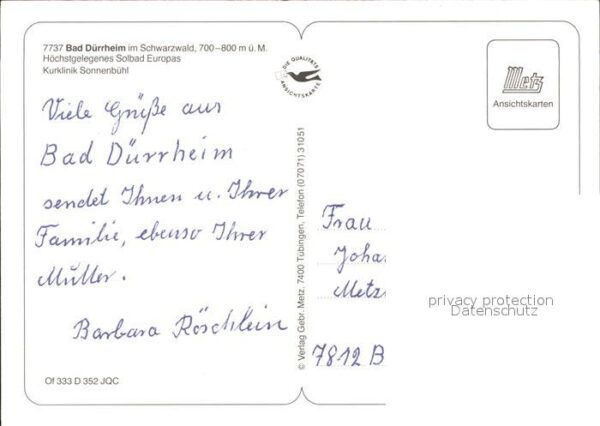 7737 Bad Dürrheim im Schwarzwald, 700–800 m ü. M.
Höchstgelegenes Solbad Europas
Kurklinik Sonnenbühl
Viele Grüße aus
Bad Dürrheim
sendet Ihnen u. Ihrer
Familie, ebenso Ihrer
Mutter.
Barbara Röschlein
Of 333 D 352 JQC
DIE QUALITÄTS
ANSICHTSKARTE
© Verlag Gebr. Metz, 7400 Tübingen, Telefon (07071) 31051
Metz
Ansichtskarten
Frau
Joha
Metz
7812 B
privacy protection
Datenschutz